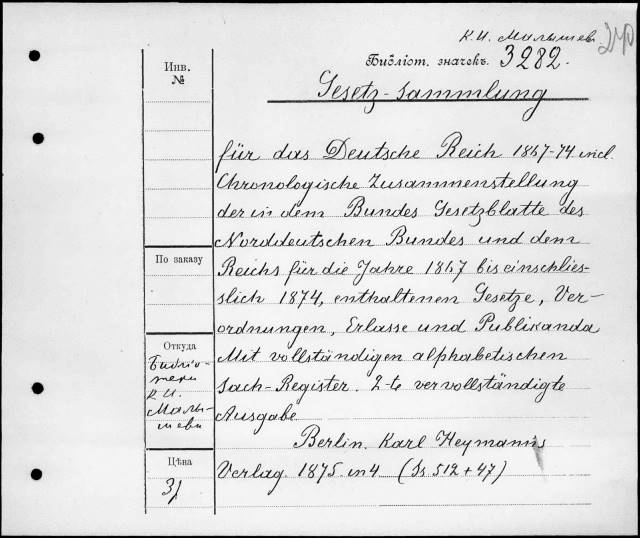 К. И. Малышев
Библіот. значекъ. 3282.
Gesetz-Sammlung
für das Deutsche Reich 1867-74 incl.
Chronologische Zusammenstellung
der in dem Bundes Gesetzblatte des
Norddeutschen Bundes und dem
Reichs für die Jahre 1867 bis einschlies-
slich 1874, enthaltenen Gesetze, Ver-
ordnungen, Erlasse und Publikanda
Mit vollständigen alphabetischen
Sach-Register. 2-te vervollständigte
Ausgabe
Berlin. Karl Heymanns
Verlag. 1875. in 4 (Ss 512 + 47)
Инв.
№
По заказу
Откуда
Библіо-
теки
К. И.
Малы-
шева
Цѣна
3/